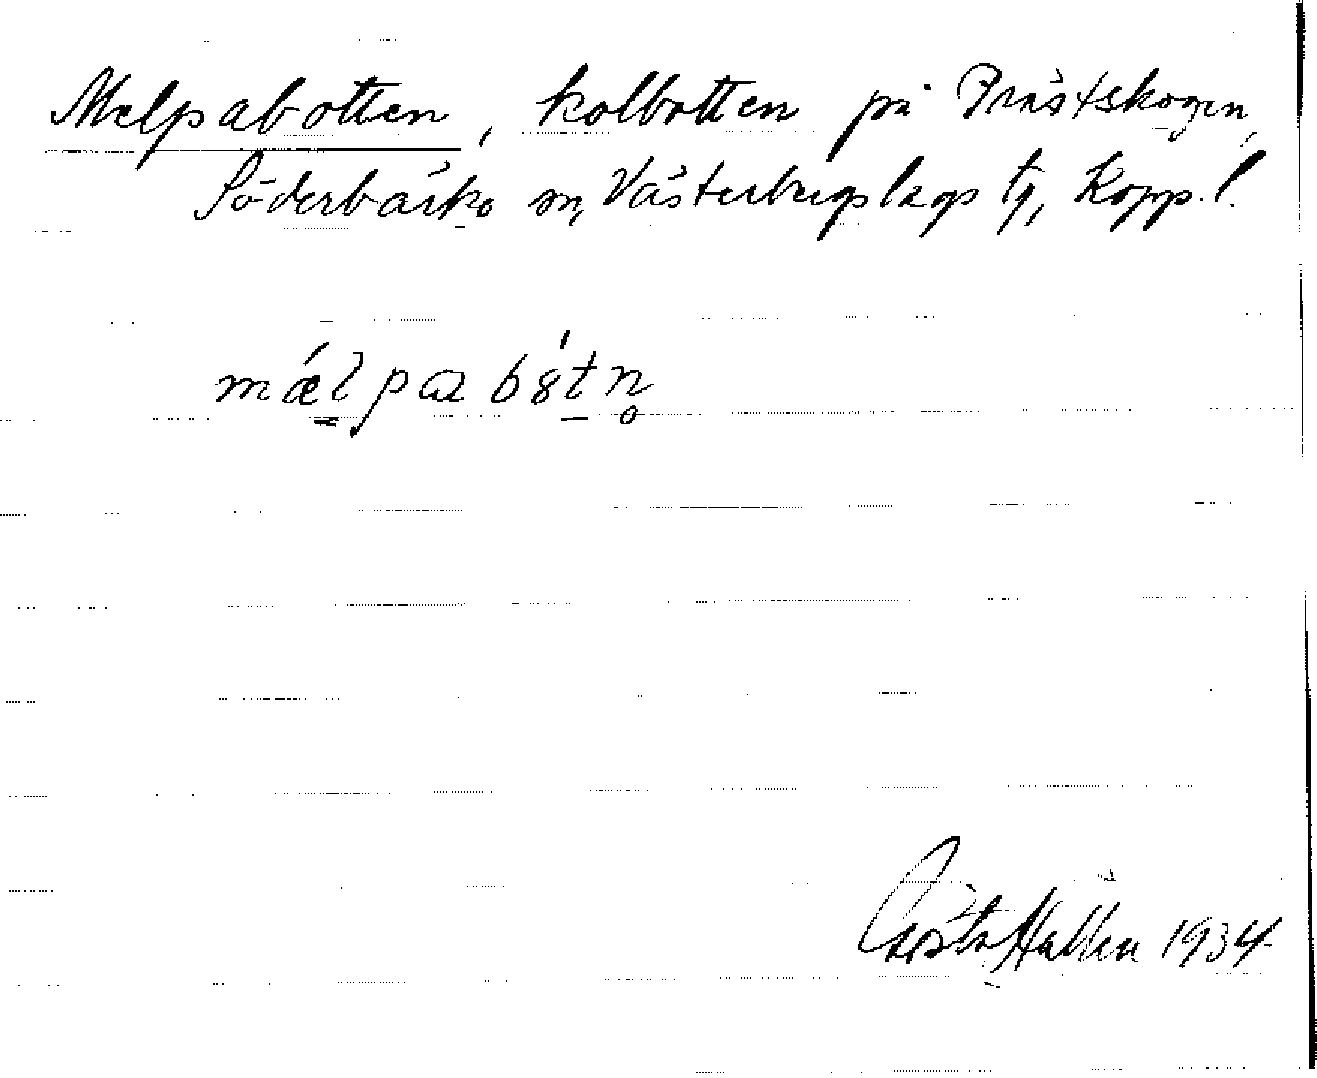 Melpabotten, kolbotten på Prästskogen,
Söderbärke sn, Västerbergslags tg, Kopp. l.
mælpabåtn
Gösta Hallén 1934